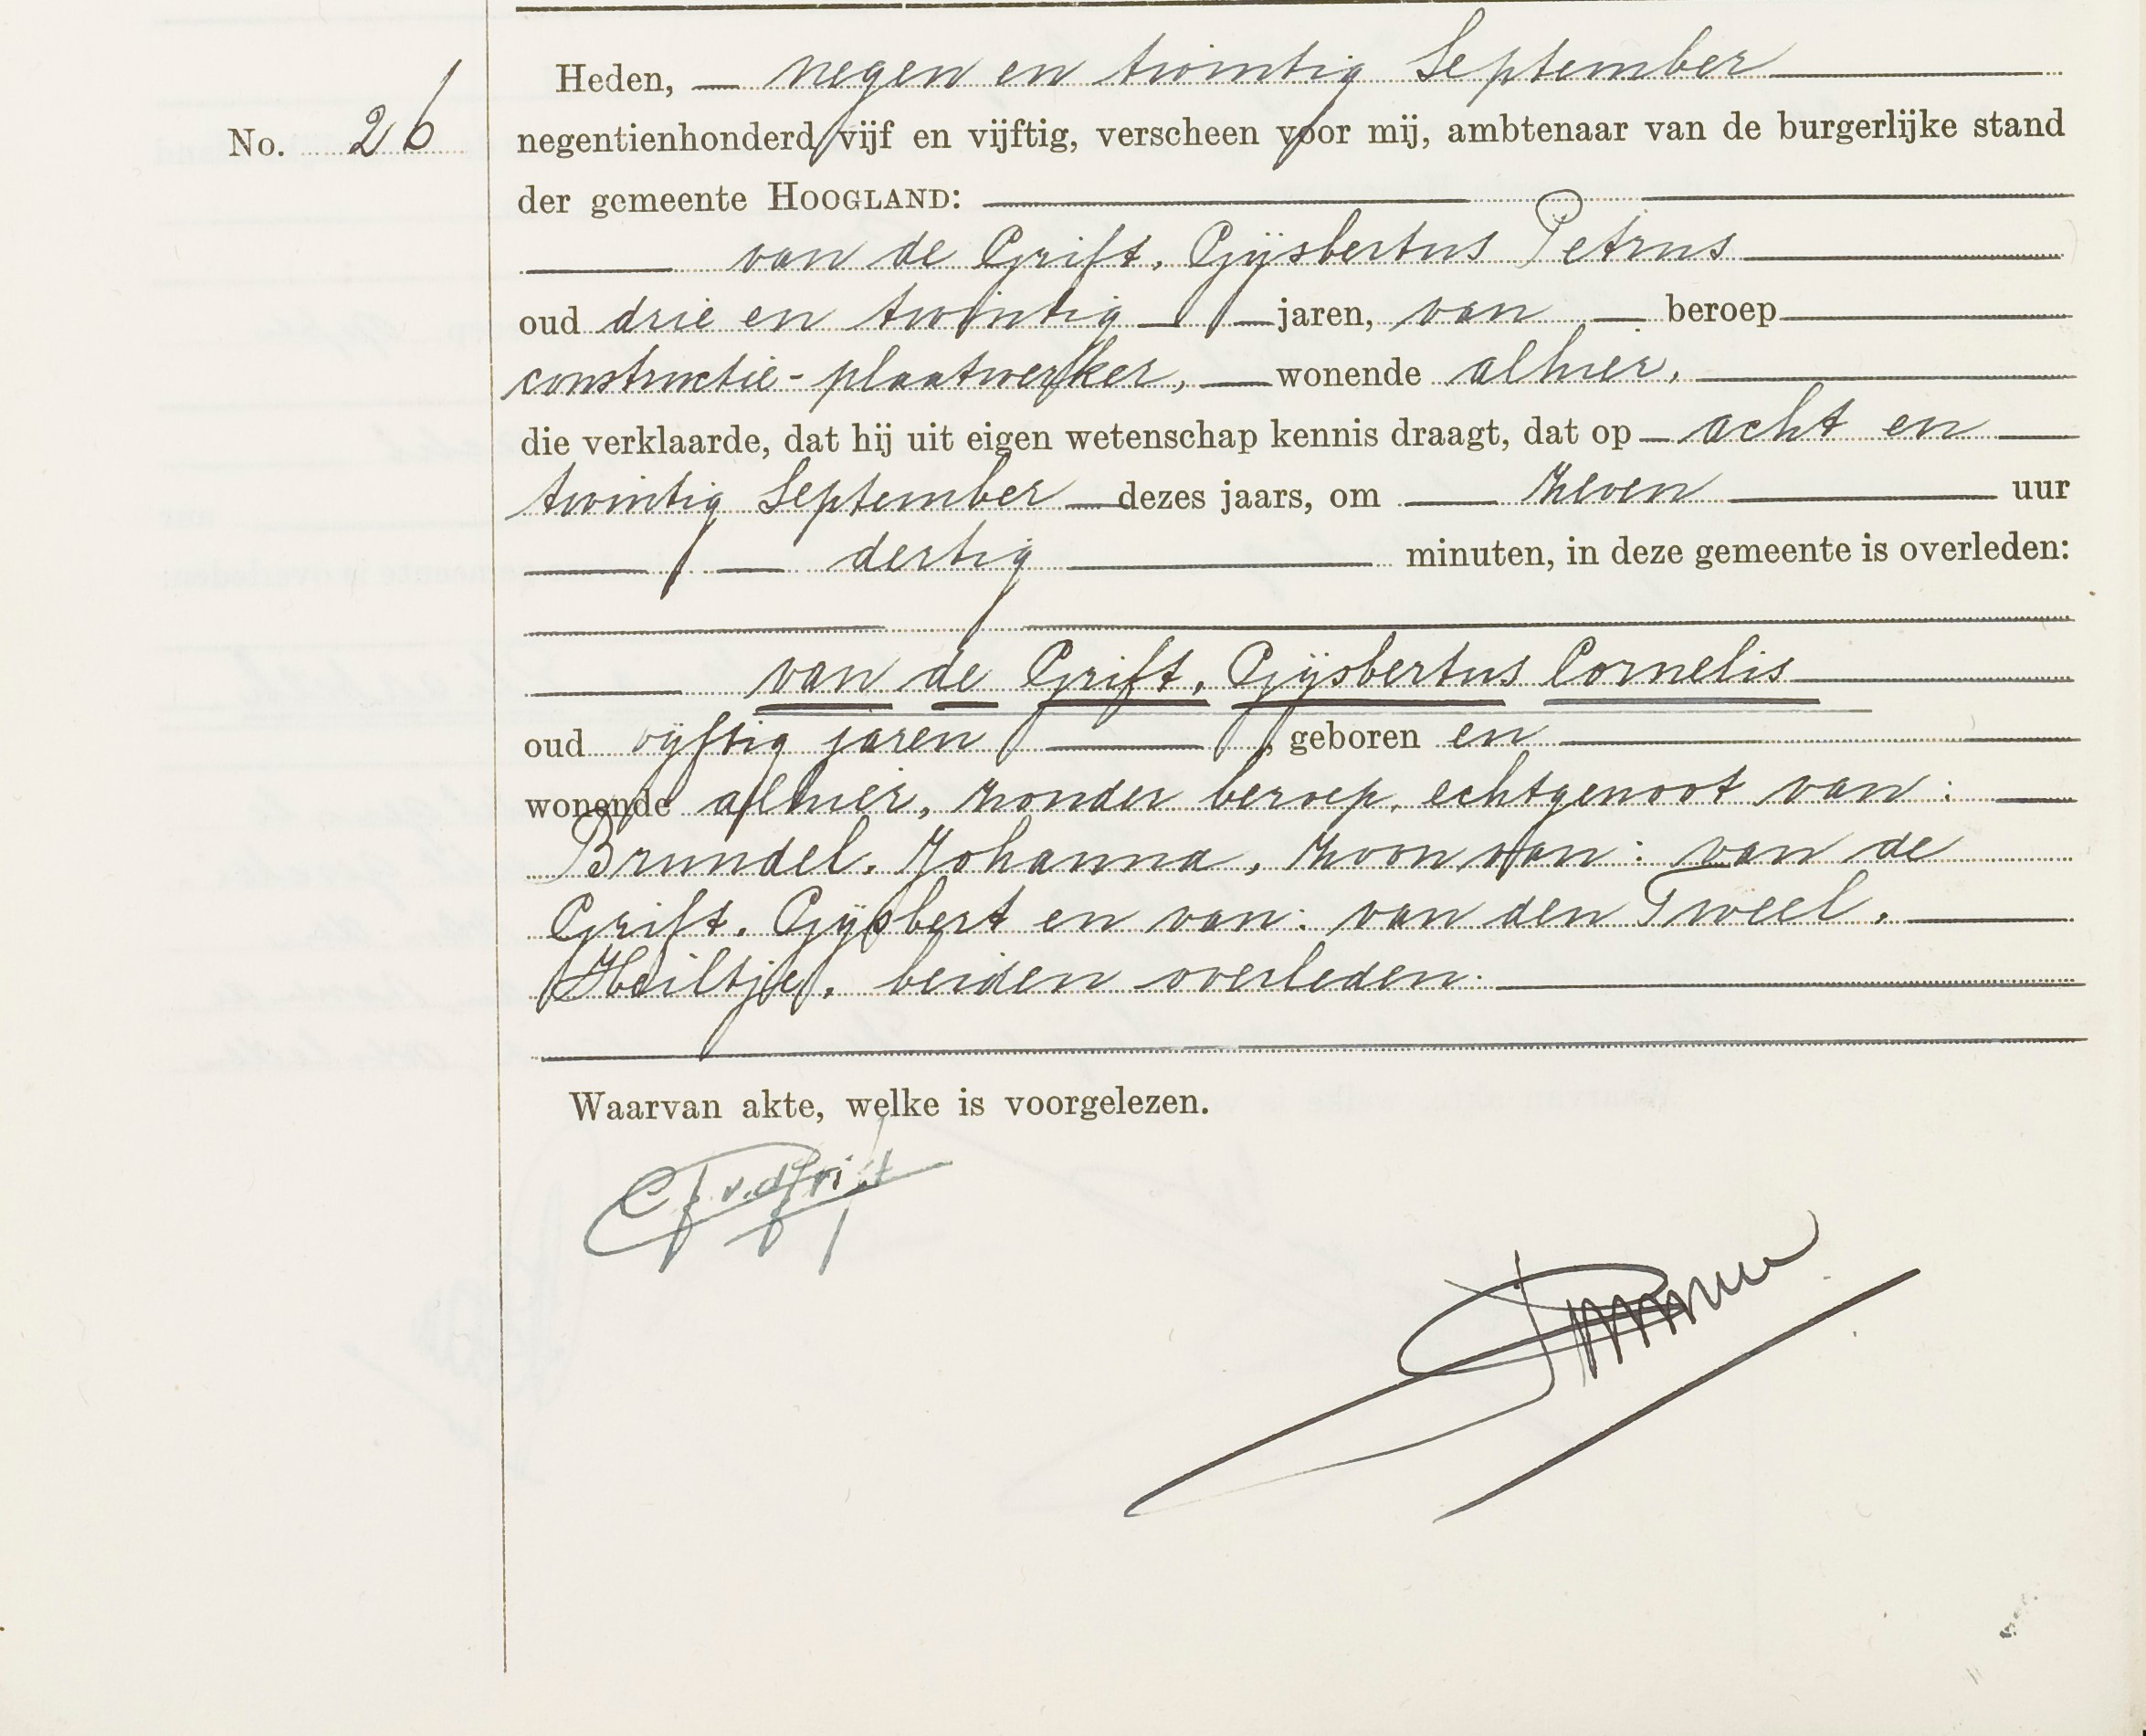 Heden, negen en twintig September
No. 26
negentienhonderd vijf en vijftig, verscheen voor mij, ambtenaar van de burgerlijke stand
der gemeente HOOGLAND:
van de Grift, Gijsbertus Petrus
oud drie en twintig jaren, van beroep
constructie-plaatwerker, wonende alhier,
die verklaarde, dat hij uit eigen wetenschap kennis draagt, dat op acht en
twintig September dezes jaars, om zeven uur
dertig minuten, in deze gemeente is overleden:
van de Grift, Gijsbertus Cornelis
oud vijftig jaren, geboren en
wonende alhier, zonder beroep, echtgenoot van:
Brundel, Johanna, zoon van: van de
Grift, Gijsbert en van: van den Tweel,
Heiltje, beiden overleden.
Waarvan akte, welke is voorgelezen.
v.d. Grift